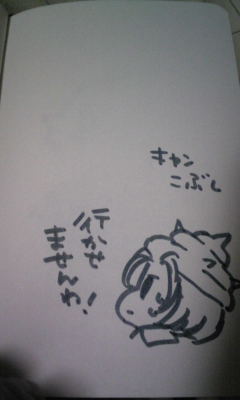 キャン
こぶし
行かせ
ませんわ!